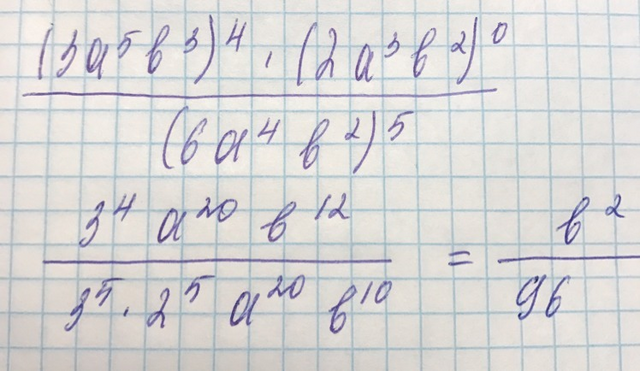 (3a⁵b³)⁴ · (2a³b²)⁰
(6a⁴b²)⁵
3⁴a²⁰b¹² = b²
3⁵·2⁵a²⁰b¹⁰ 96